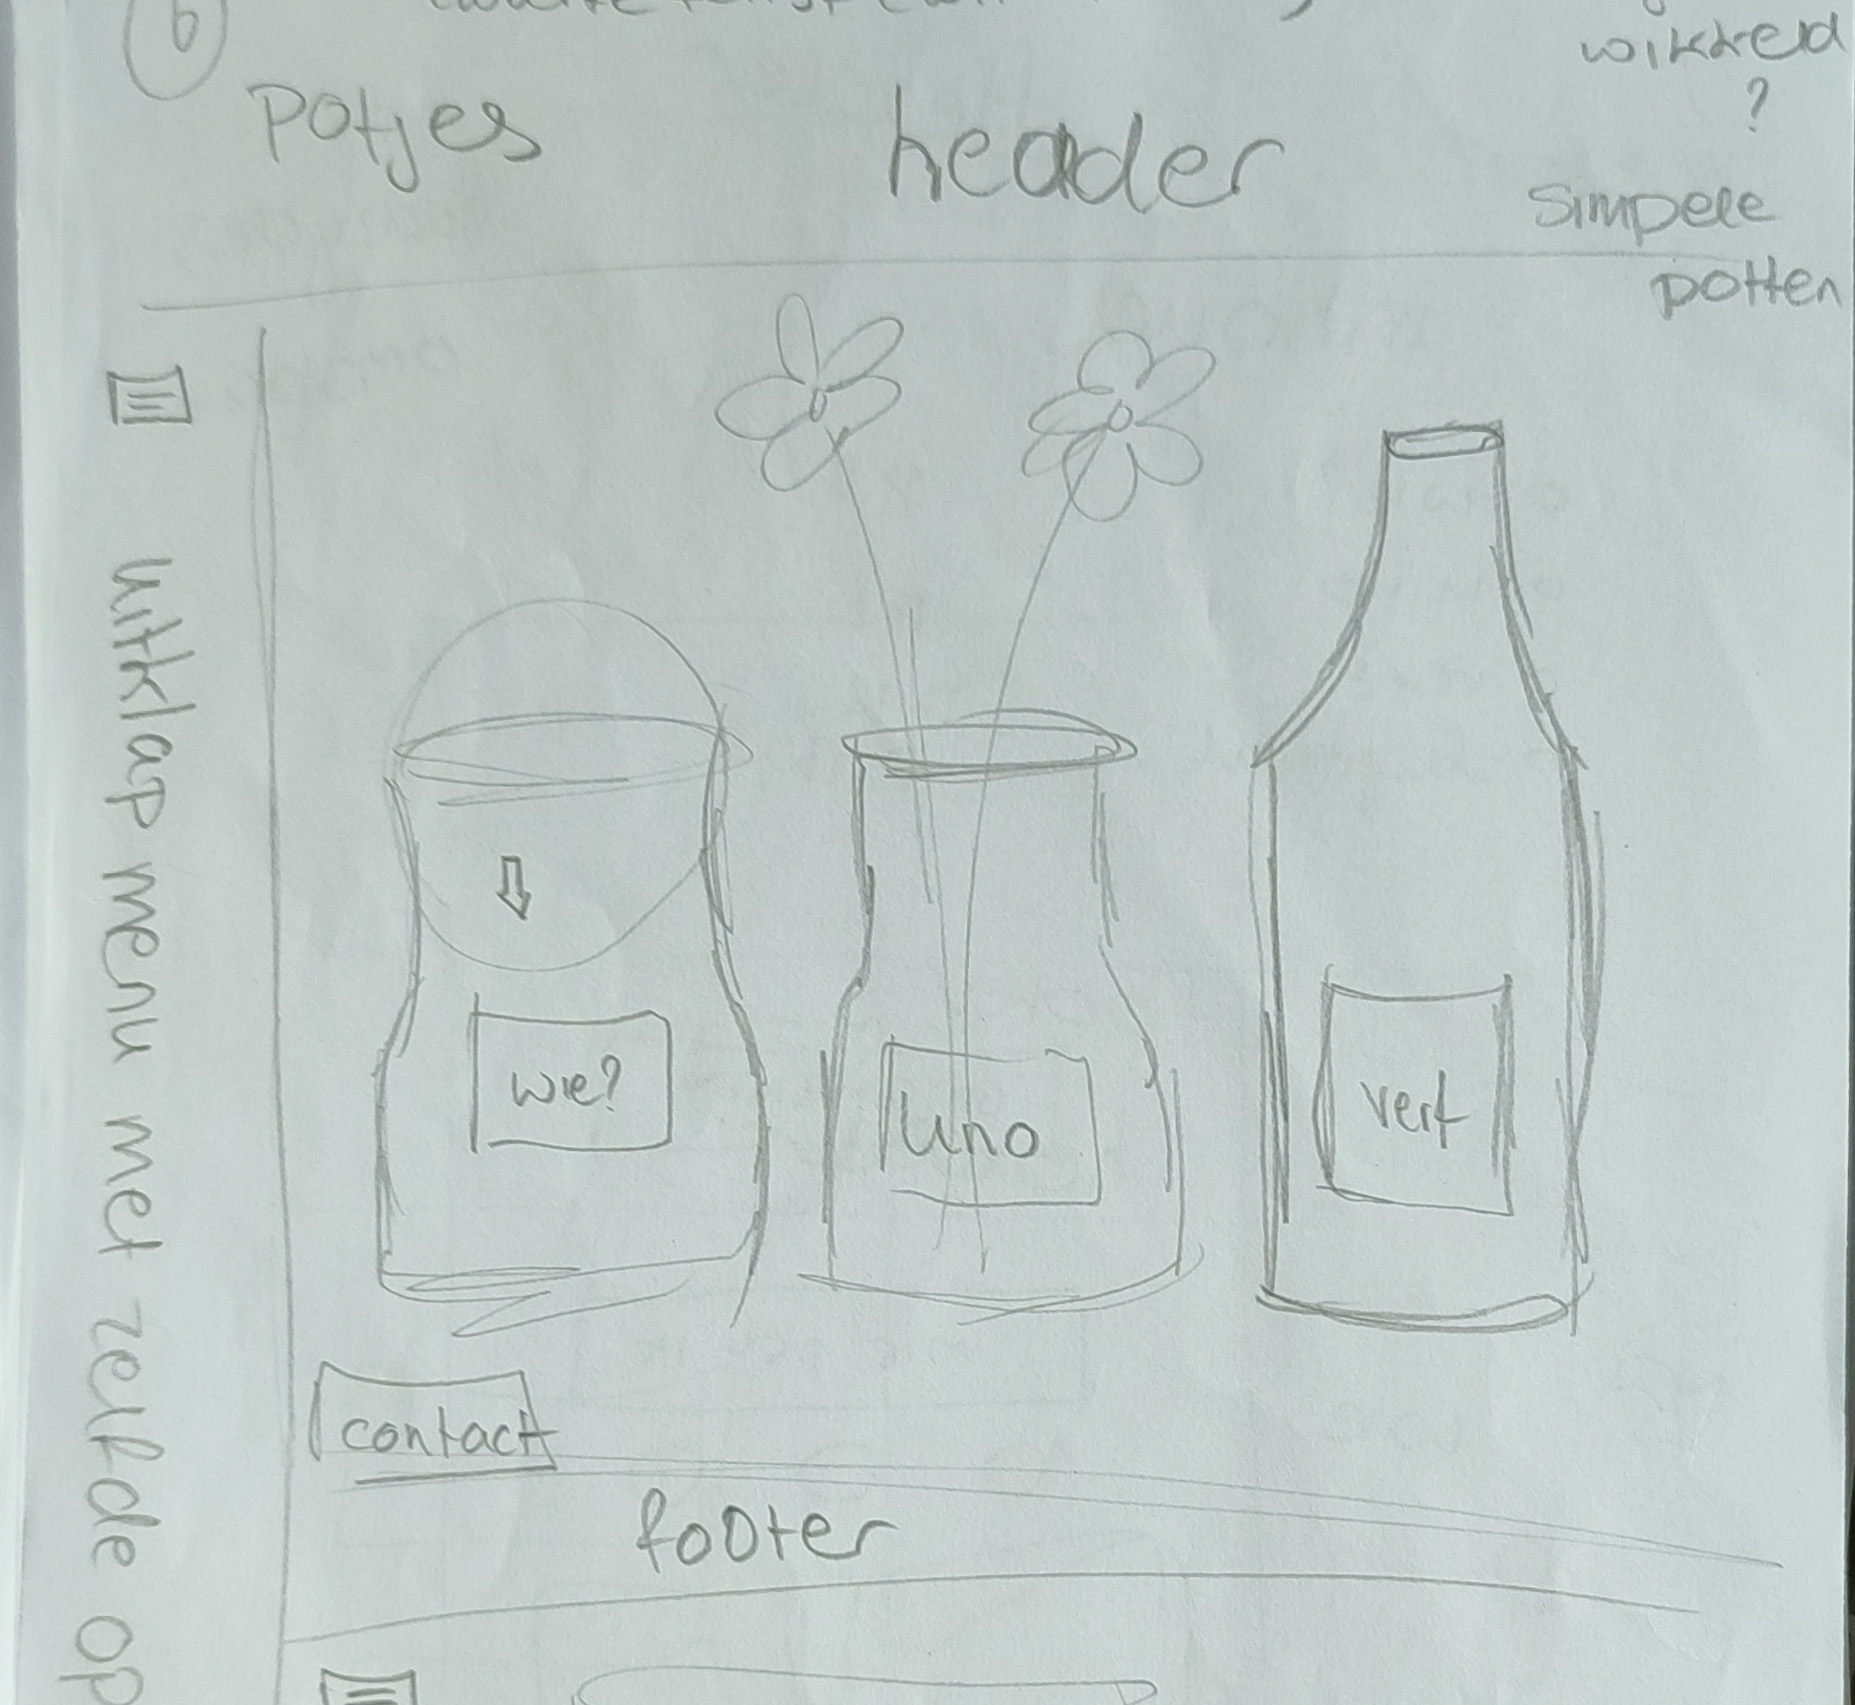 6
wikkeld
?
Potjes
header
simpele
potten
uitklap menu met zelfde op
wie?
uno
verf
contact
footer